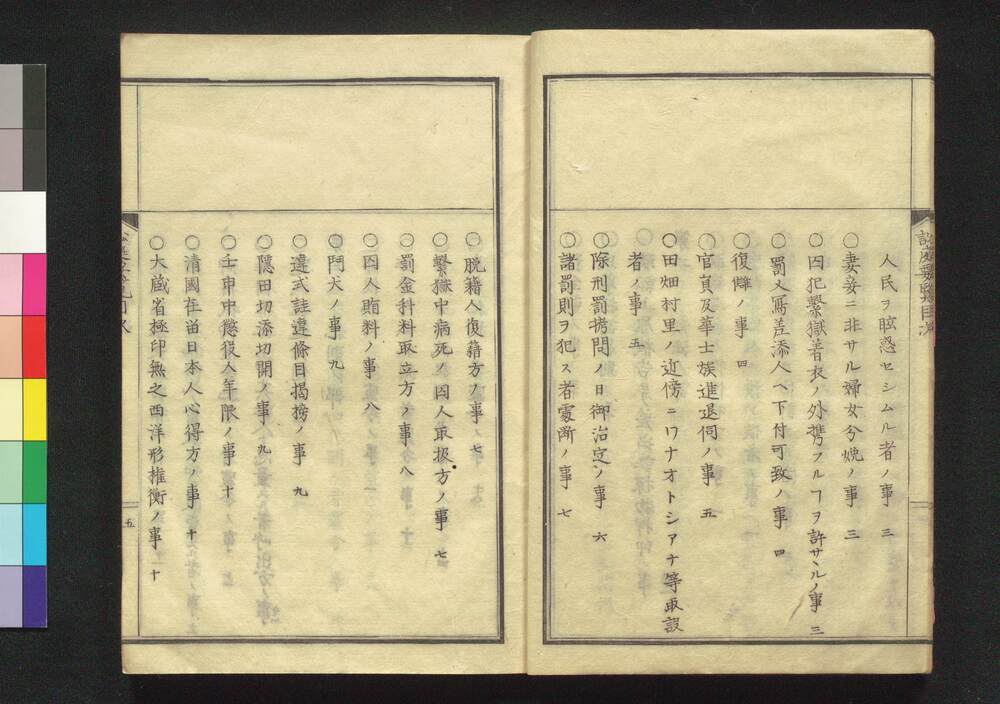 人民ヲ眩惑セシムル者ノ事 三
○妻妾ニ非サル婦女分娩ノ事 三
○囚犯繋獄着衣ノ外携フルヿヲ許サヽルノ事 三
○罰文寫差添人ヘ下付可致ノ事 四
○復讐ノ事 四
○官員及華士族進退伺ノ事 五
○田畑村里ノ近傍ニワナオトシアナ等取設
者ノ事 五
○除刑罰拷問ノ日御治定ノ事 六
○諸罰則ヲ犯ス者處断ノ事 七
○脱籍人復籍方ノ事 七
○繋獄中病死ノ囚人取扱方ノ事 七
○罰金科料取立方ノ事 八
○囚人賄料ノ事 八
○鬥犬ノ事 九
○違式詿違條目掲榜ノ事 九
○隠田切添切開ノ事 九
○壬申中懲役人年限ノ事 十
○清國在留日本人心得方ノ事 十
○大蔵省極印無之西洋形権衡ノ事 十
五